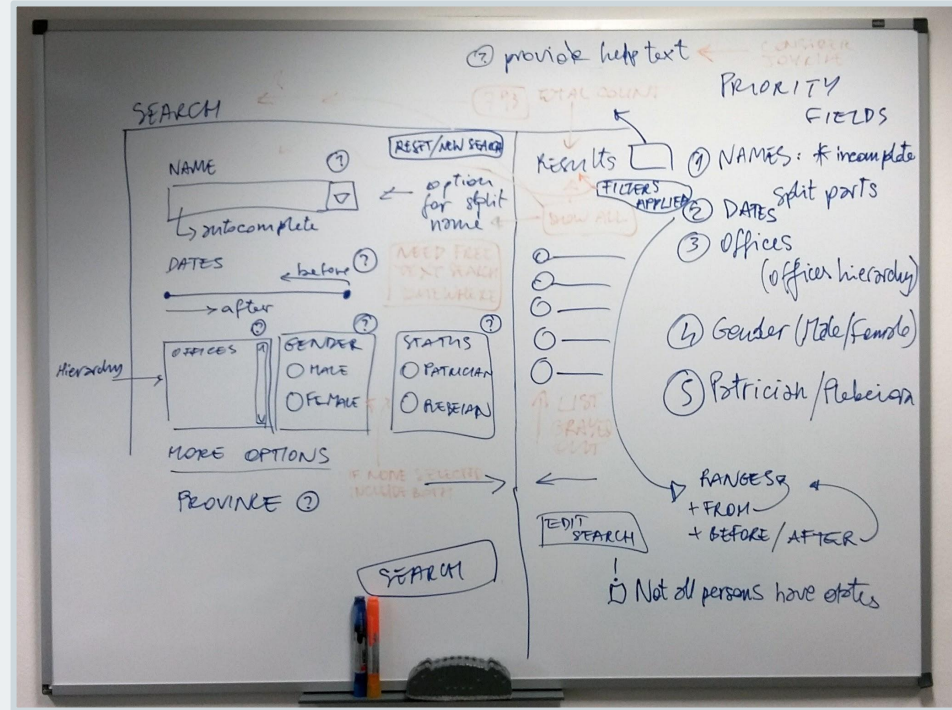 ? provide help text
CONSIDER
TOTAL COUNT
PRIORITY
FIELDS
SEARCH
RESET/NEW SEARCH
NAME ?
autocomplete
option
for split
name
DATES ?
before
after
NEED FREE
TEXT SEARCH
Hierarchy
OFFICES ?
GENDER ?
MALE
FEMALE
STATUS ?
PATRICIAN
PLEBEIAN
MORE OPTIONS
PROVINCE ?
IF NONE SELECTED
INCLUDE BOTH
SEARCH
Results
FILTERS
APPLIED
SHOW ALL
LIST
EDIT
SEARCH
1 NAMES: * incomplete
split parts
2 DATES
3 Offices
(offices hierarchy)
4 Gender (Male/Female)
5 Patrician/Plebeian
RANGES
+ FROM
+ BEFORE/AFTER
! Not all persons have dates